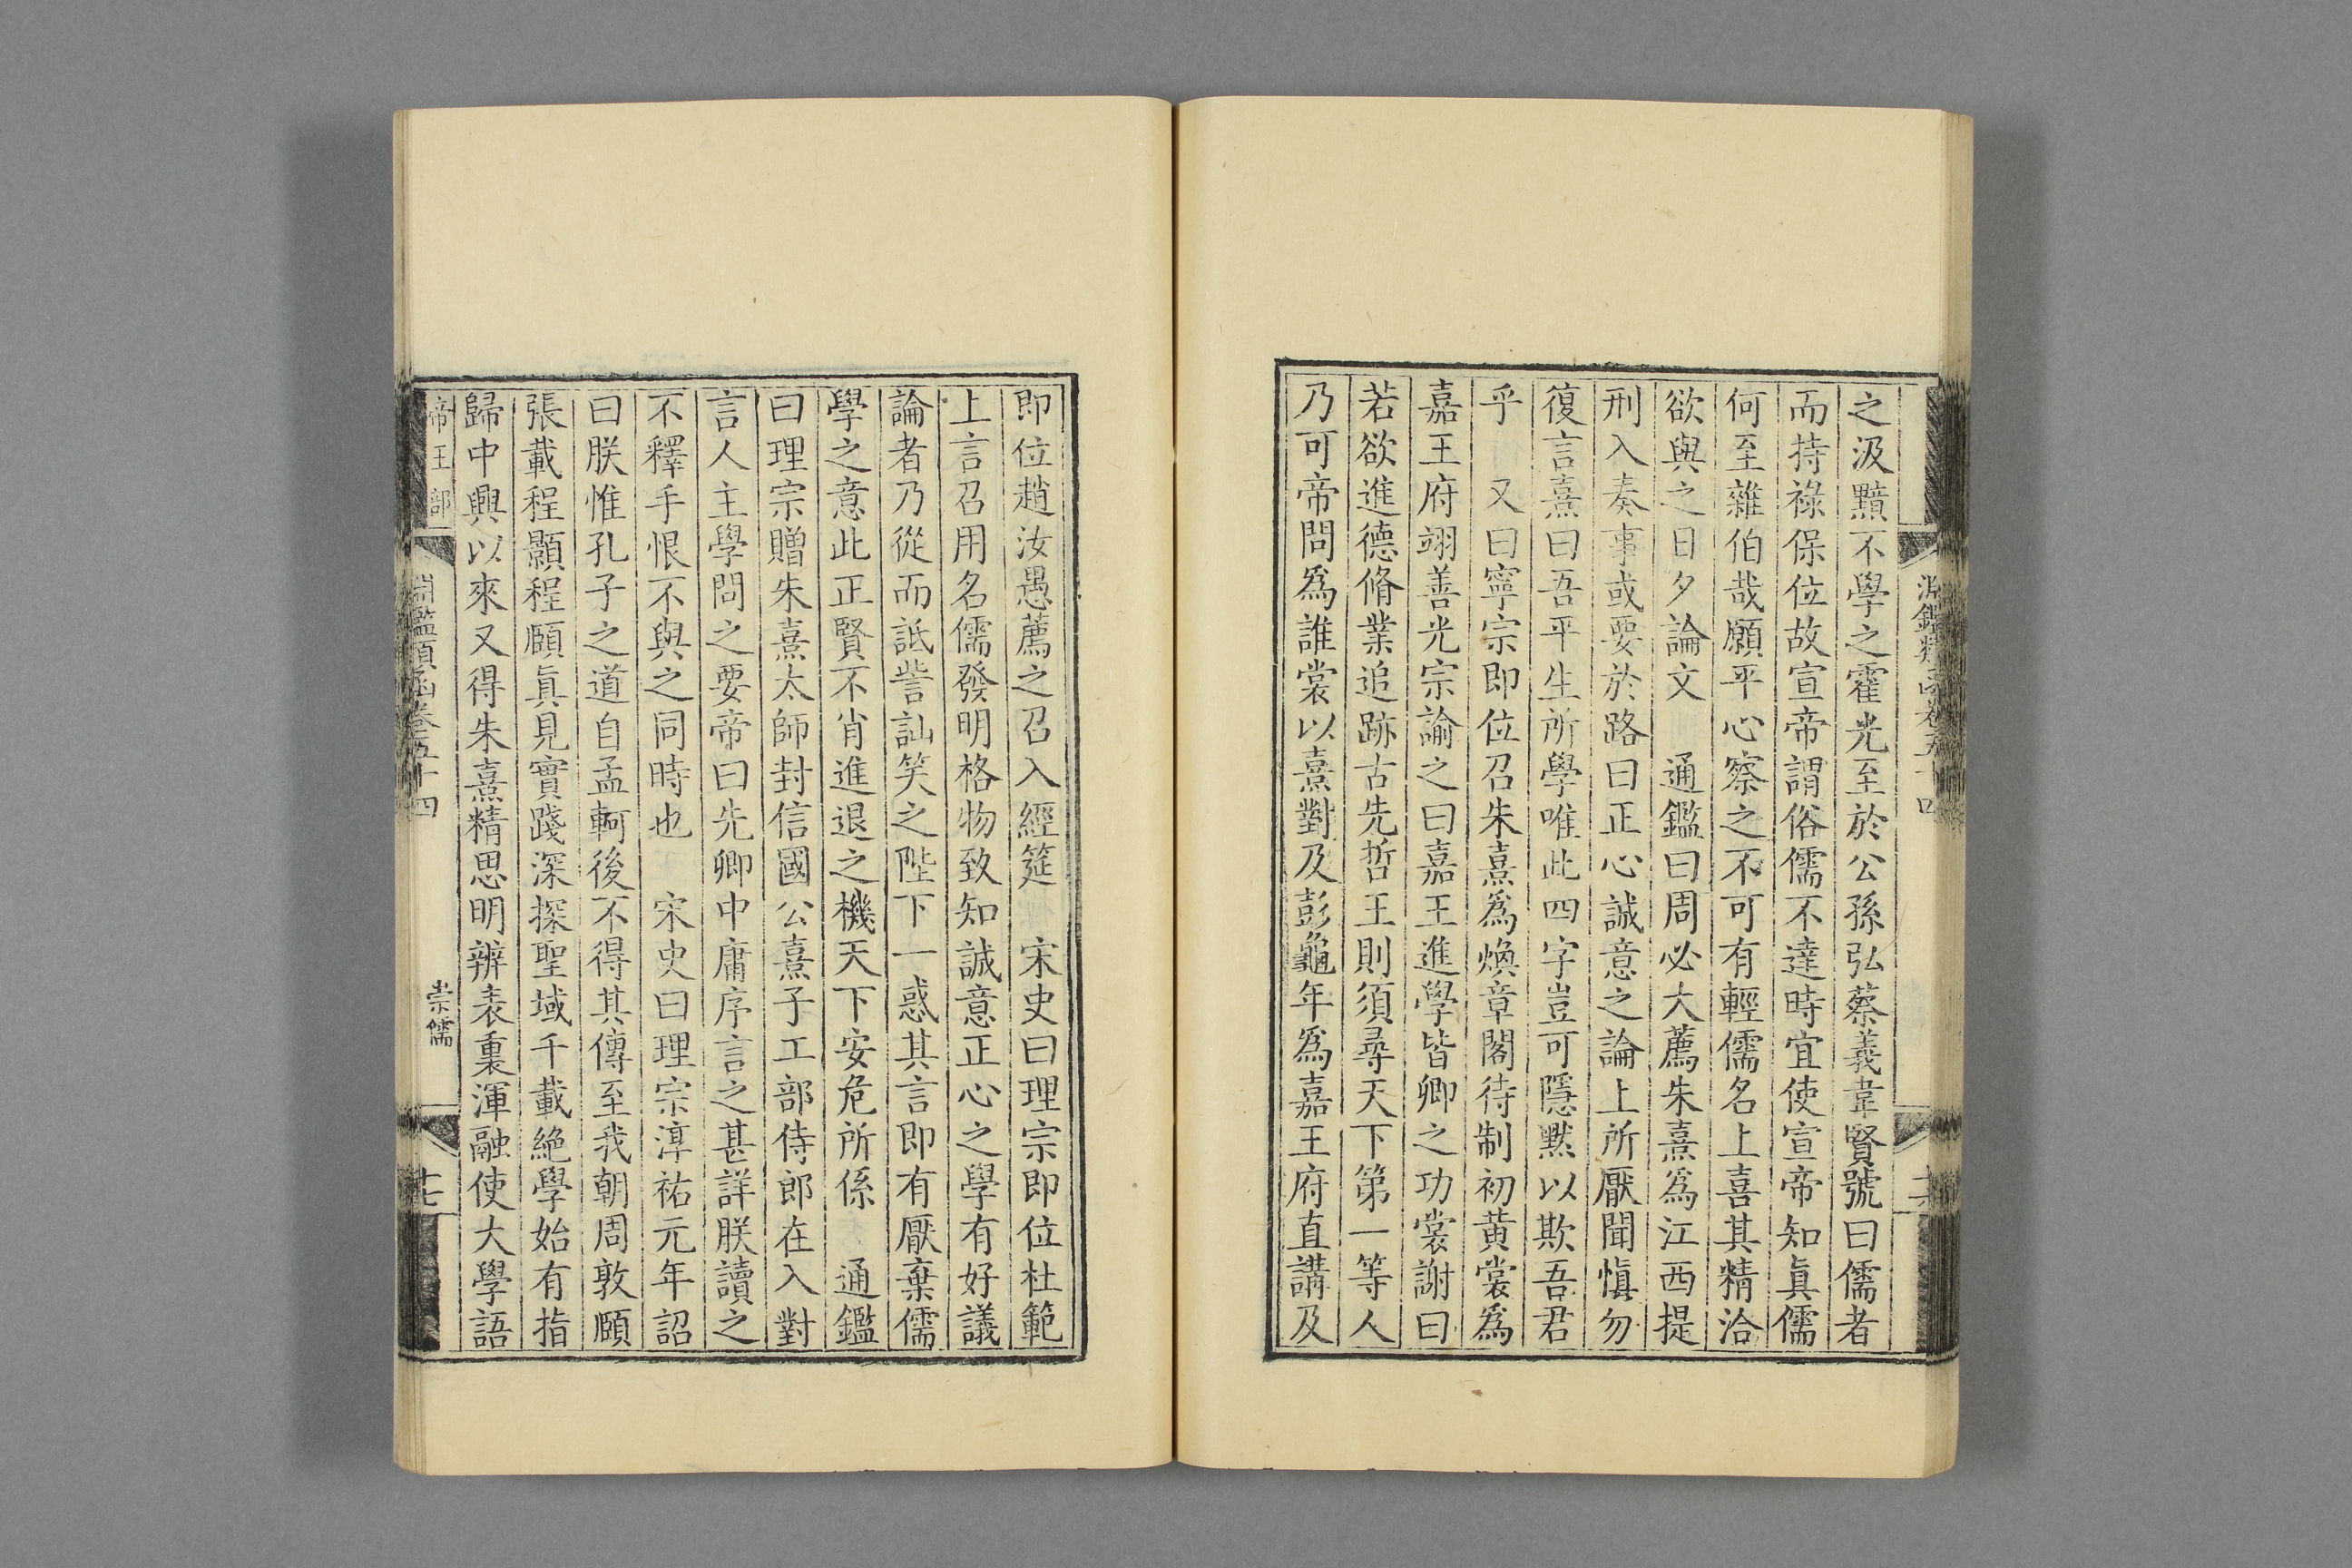 之汲黯不學之霍光至於公孫弘蔡義韋賢號曰儒者
而持祿保位故宣帝謂俗儒不達時宜使宣帝知眞儒
何至雜伯哉願平心察之不可有輕儒名上喜其精洽
欲與之日夕論文 通鑑曰周必大薦朱熹爲江西提
刑入奏事或要於路曰正心誠意之論上所厭聞愼勿
復言熹曰吾平生所學唯此四字豈可隱默以欺吾君
乎 又曰寧宗即位召朱熹爲煥章閣待制初黄裳爲
嘉王府翊善光宗諭之曰嘉王進學皆卿之功裳謝曰
若欲進德脩業追跡古先哲王則須尋天下第一等人
乃可帝問爲誰裳以熹對及彭龜年爲嘉王府直講及
即位趙汝愚薦之召入經筵 宋史曰理宗即位杜範
上言召用名儒發明格物致知誠意正心之學有好議
論者乃從而詆訾訕笑之陛下一惑其言即有厭棄儒
學之意此正賢不肖進退之機天下安危所係 通鑑
曰理宗贈朱熹太師封信國公熹子工部侍郎在入對
言人主學問之要帝曰先卿中庸序言之甚詳朕讀之
不釋手恨不與之同時也 宋史曰理宗淳祐元年詔
曰朕惟孔子之道自孟軻後不得其傳至我朝周敦頤
張載程顥程頤眞見實踐深探聖域千載絶學始有指
歸中興以來又得朱熹精思明辨表裏渾融使大學語
帝王部
淵鑑類函卷五十四
崇儒
十七